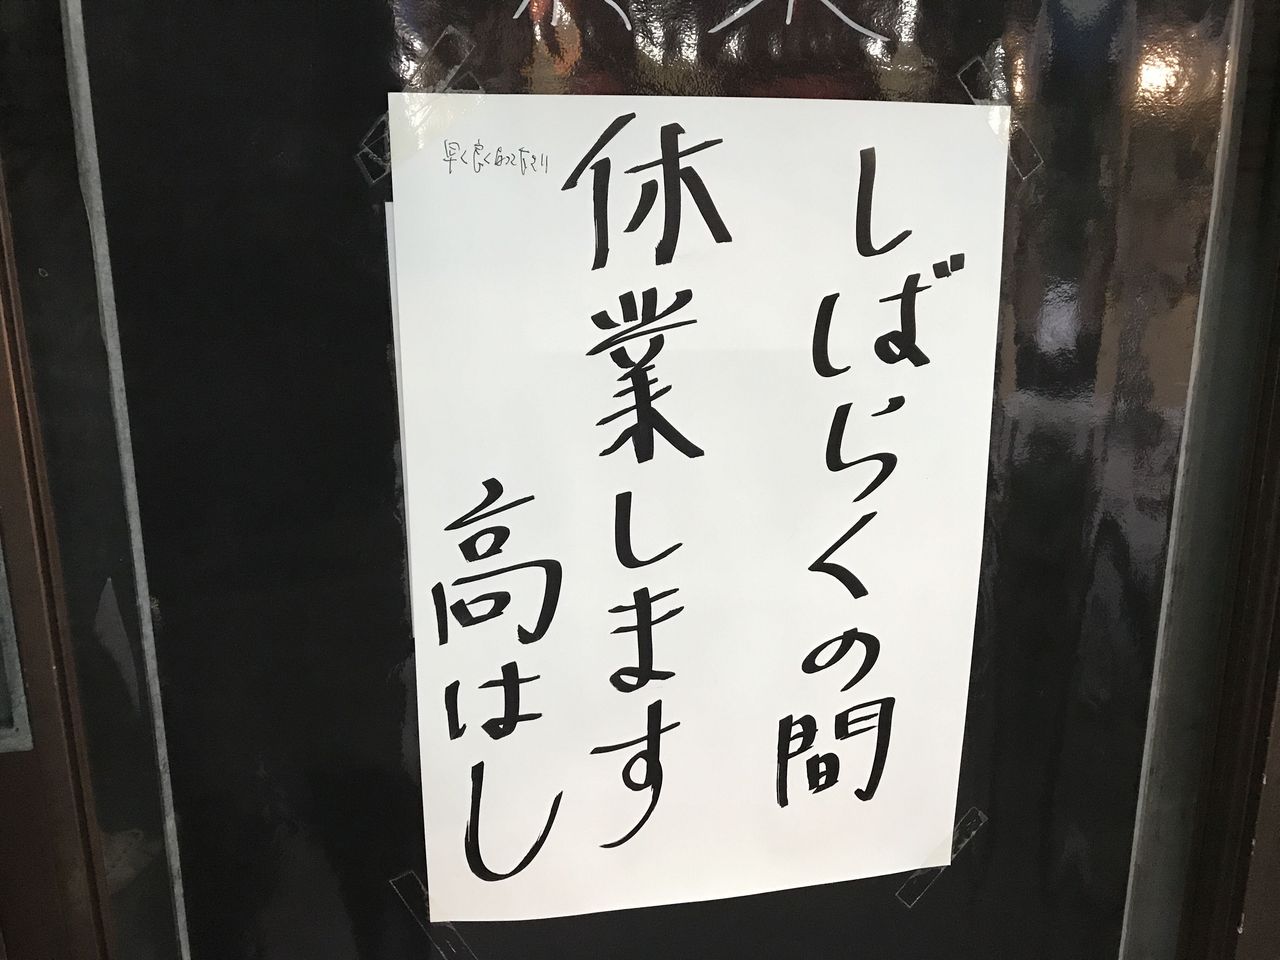 しばらくの間
休業します
高はし
早く良くなって下さい